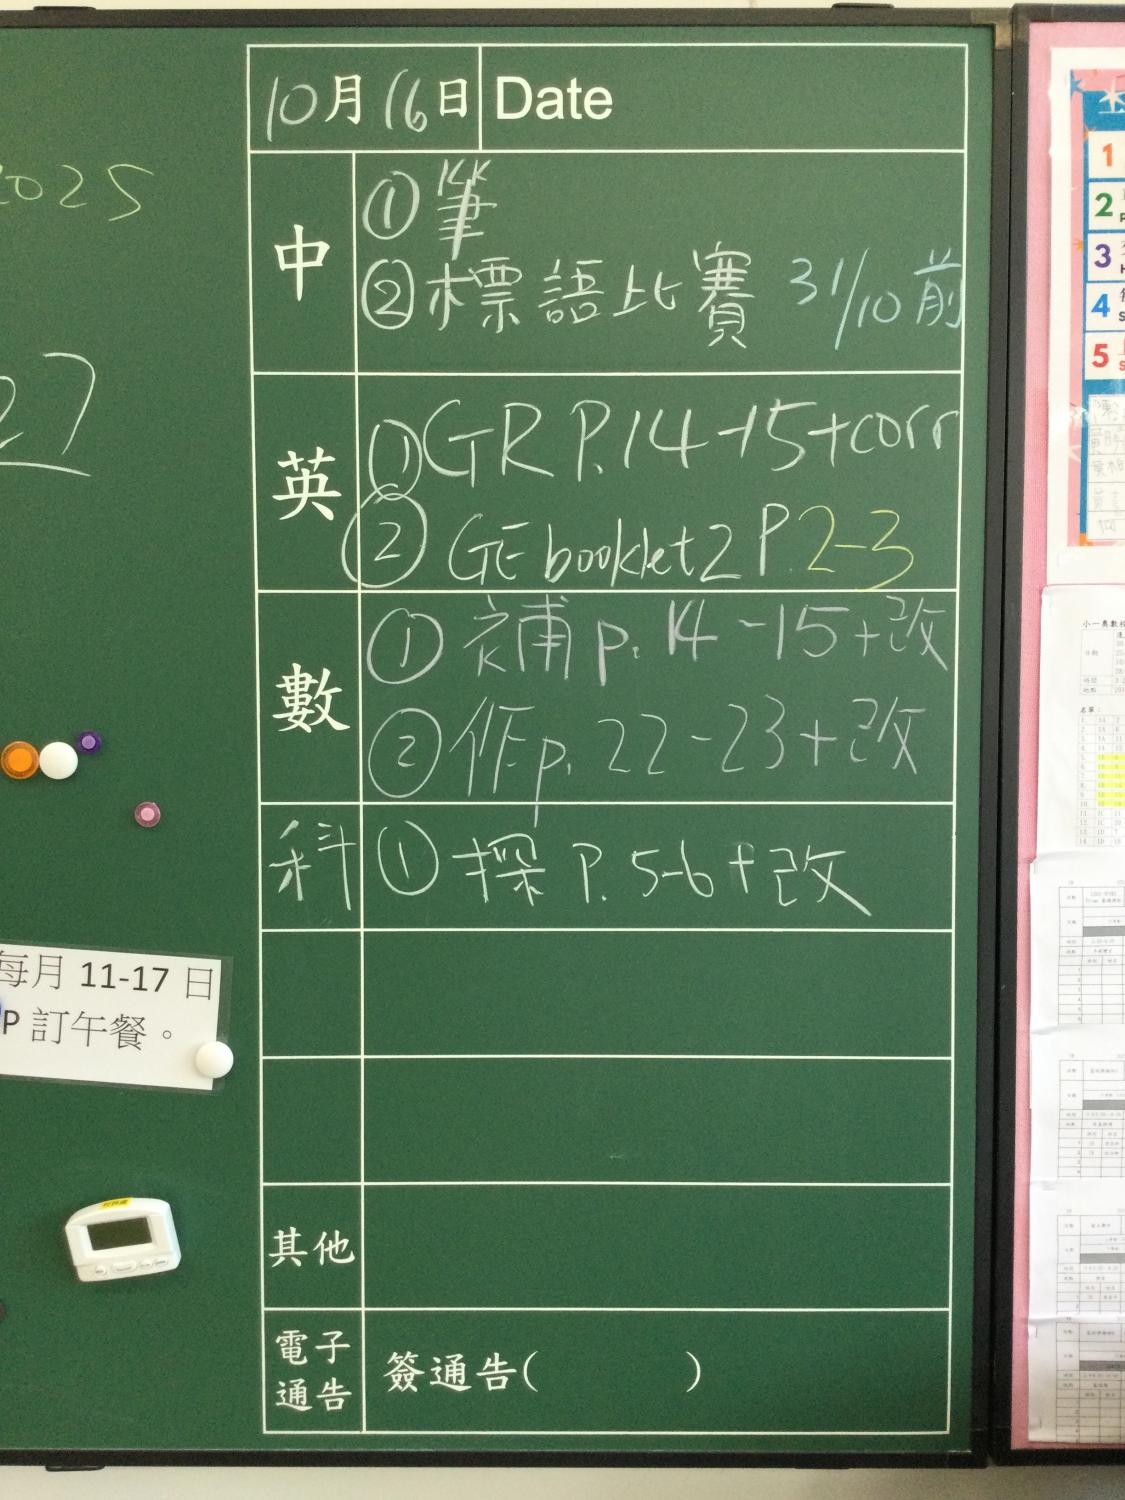 2025
27
10月16日 Date
中
①筆
②標語比賽 31/10前
英
①GR P.14-15+corr
②GE booklet2 P.2-3
數
①補p.14-15+改
②作p.22-23+改
科
①探P.5-6+改
其他
電子
通告
簽通告( )
每月 11-17 日
P 訂午餐。
1
2
3
4
5